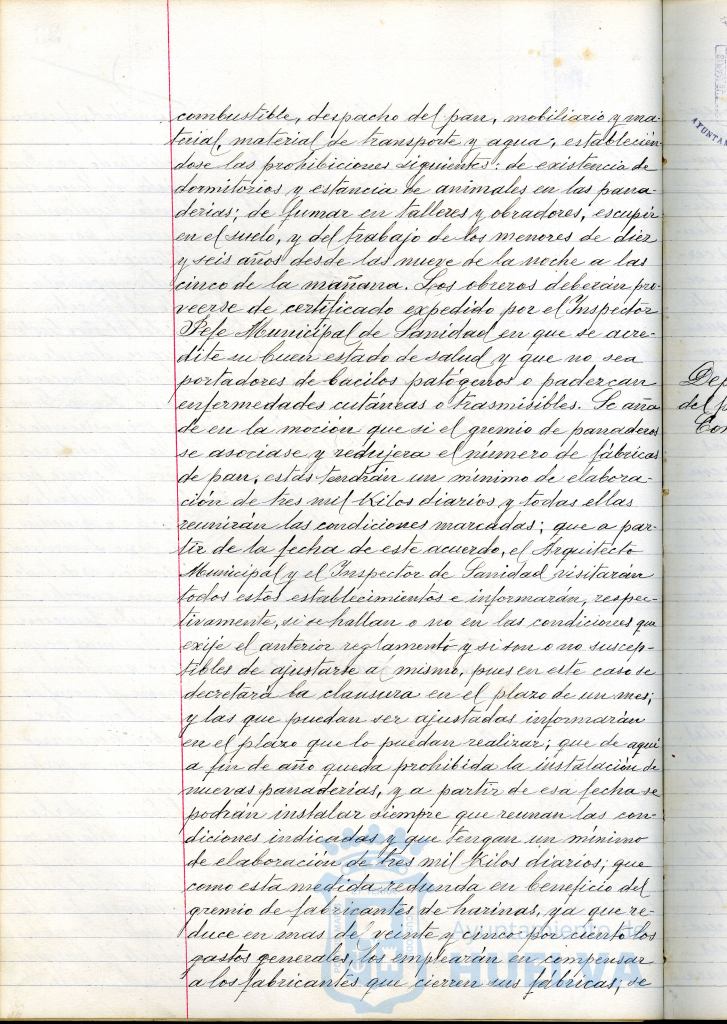 combustible, despacho del pan, mobiliario y ma-
terial, material de transporte y agua, establecién
dose las prohibiciones siguientes: de existencia de
dormitorios y estancia de animales en las pana-
derias; de fumar en talleres y obradores, escupir
en el suelo, y del trabajo de los menores de diez
y seis años desde las nueve de la noche a las
cinco de la mañana. Los obreros deberán pro-
veerse de certificado expedido por el Inspector
Jefe Municipal de Sanidad en que se acre-
dite su buen estado de salud y que no sea
portadores de bacilos patógenos o padezcan
enfermedades cutáneas o trasmisibles. Se aña
de en la moción que si el gremio de panaderos
se asociase y redujera el número de fábricas
de pan, estas tendrán un mínimo de elabora-
ción de tres mil Kilos diarios y todas ellas
reunirán las condiciones marcadas; que a par-
tir de la fecha de este acuerdo, el Arquitecto
Municipal y el Inspector de Sanidad visitarán
todos estos establecimientos e informarán, respec-
tivamente, si se hallan o no en las condiciones que
exije el anterior reglamento y si son o no suscep-
tibles de ajustarse al mismo, pues en este caso se
decretará la clausura en el plazo de un mes;
y las que puedan ser ajustadas informarán
en el plazo que lo puedan realizar; que de aquí
a fin de año queda prohibida la instalación de
nuevas panaderías, y a partir de esa fecha se
podrán instalar siempre que reunan las con-
diciones indicadas y que tengan un mínimo
de elaboración de tres mil Kilos diarios; que
como esta medida redunda en beneficio del
gremio de fabricantes de harinas, ya que re-
duce en mas de veinte y cinco por ciento los
gastos generales, los emplearán en compensar
a los fabricantes que cierren sus fábricas; se
Ayuntamiento de
HUELVA
AYUNTA
del p